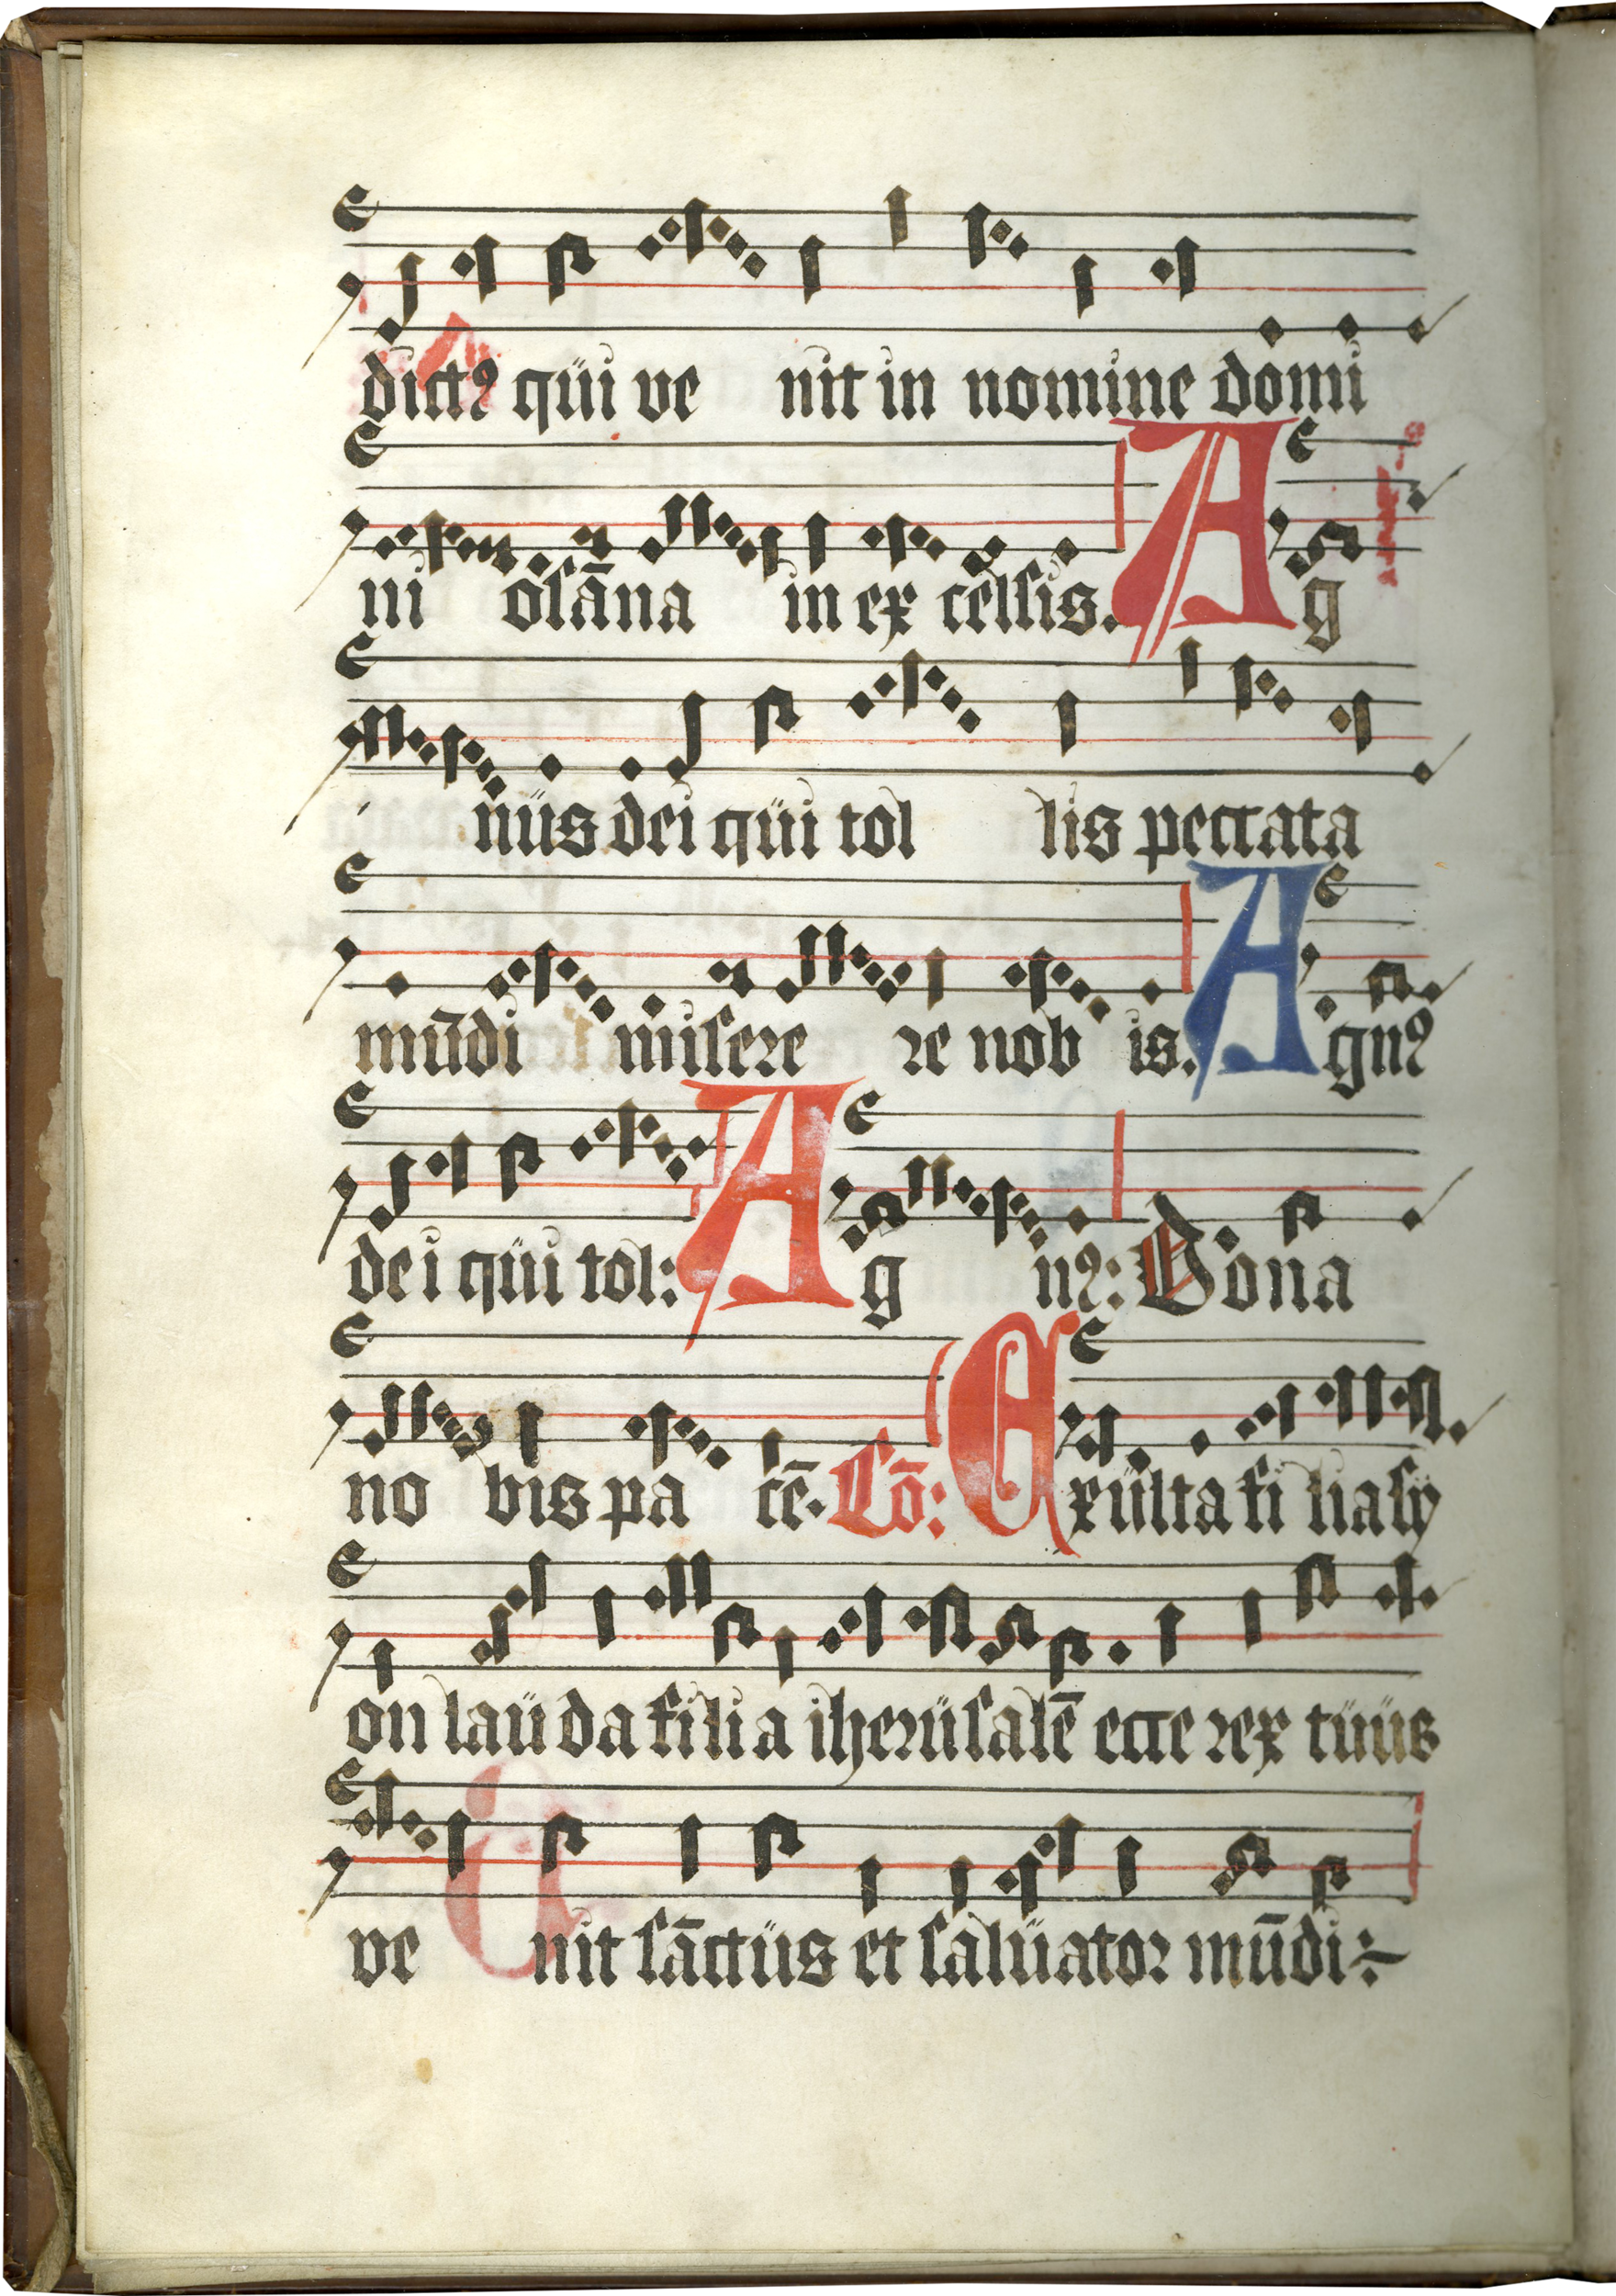 dictꝰ qüi ve nit in nomine domi
ni osāna in ex celsis. Ag
nüs dei qüi tol lis peccata
mūdi misere re nob is. Agnꝰ
dei qüi tol: Ag nꝰ: Dona
no bis pa cē. Cō: Exülta fi lia sy
on laüda filia iherüsalē ecce rex tüüs
ve nit sāctüs et salüator mūdi:~